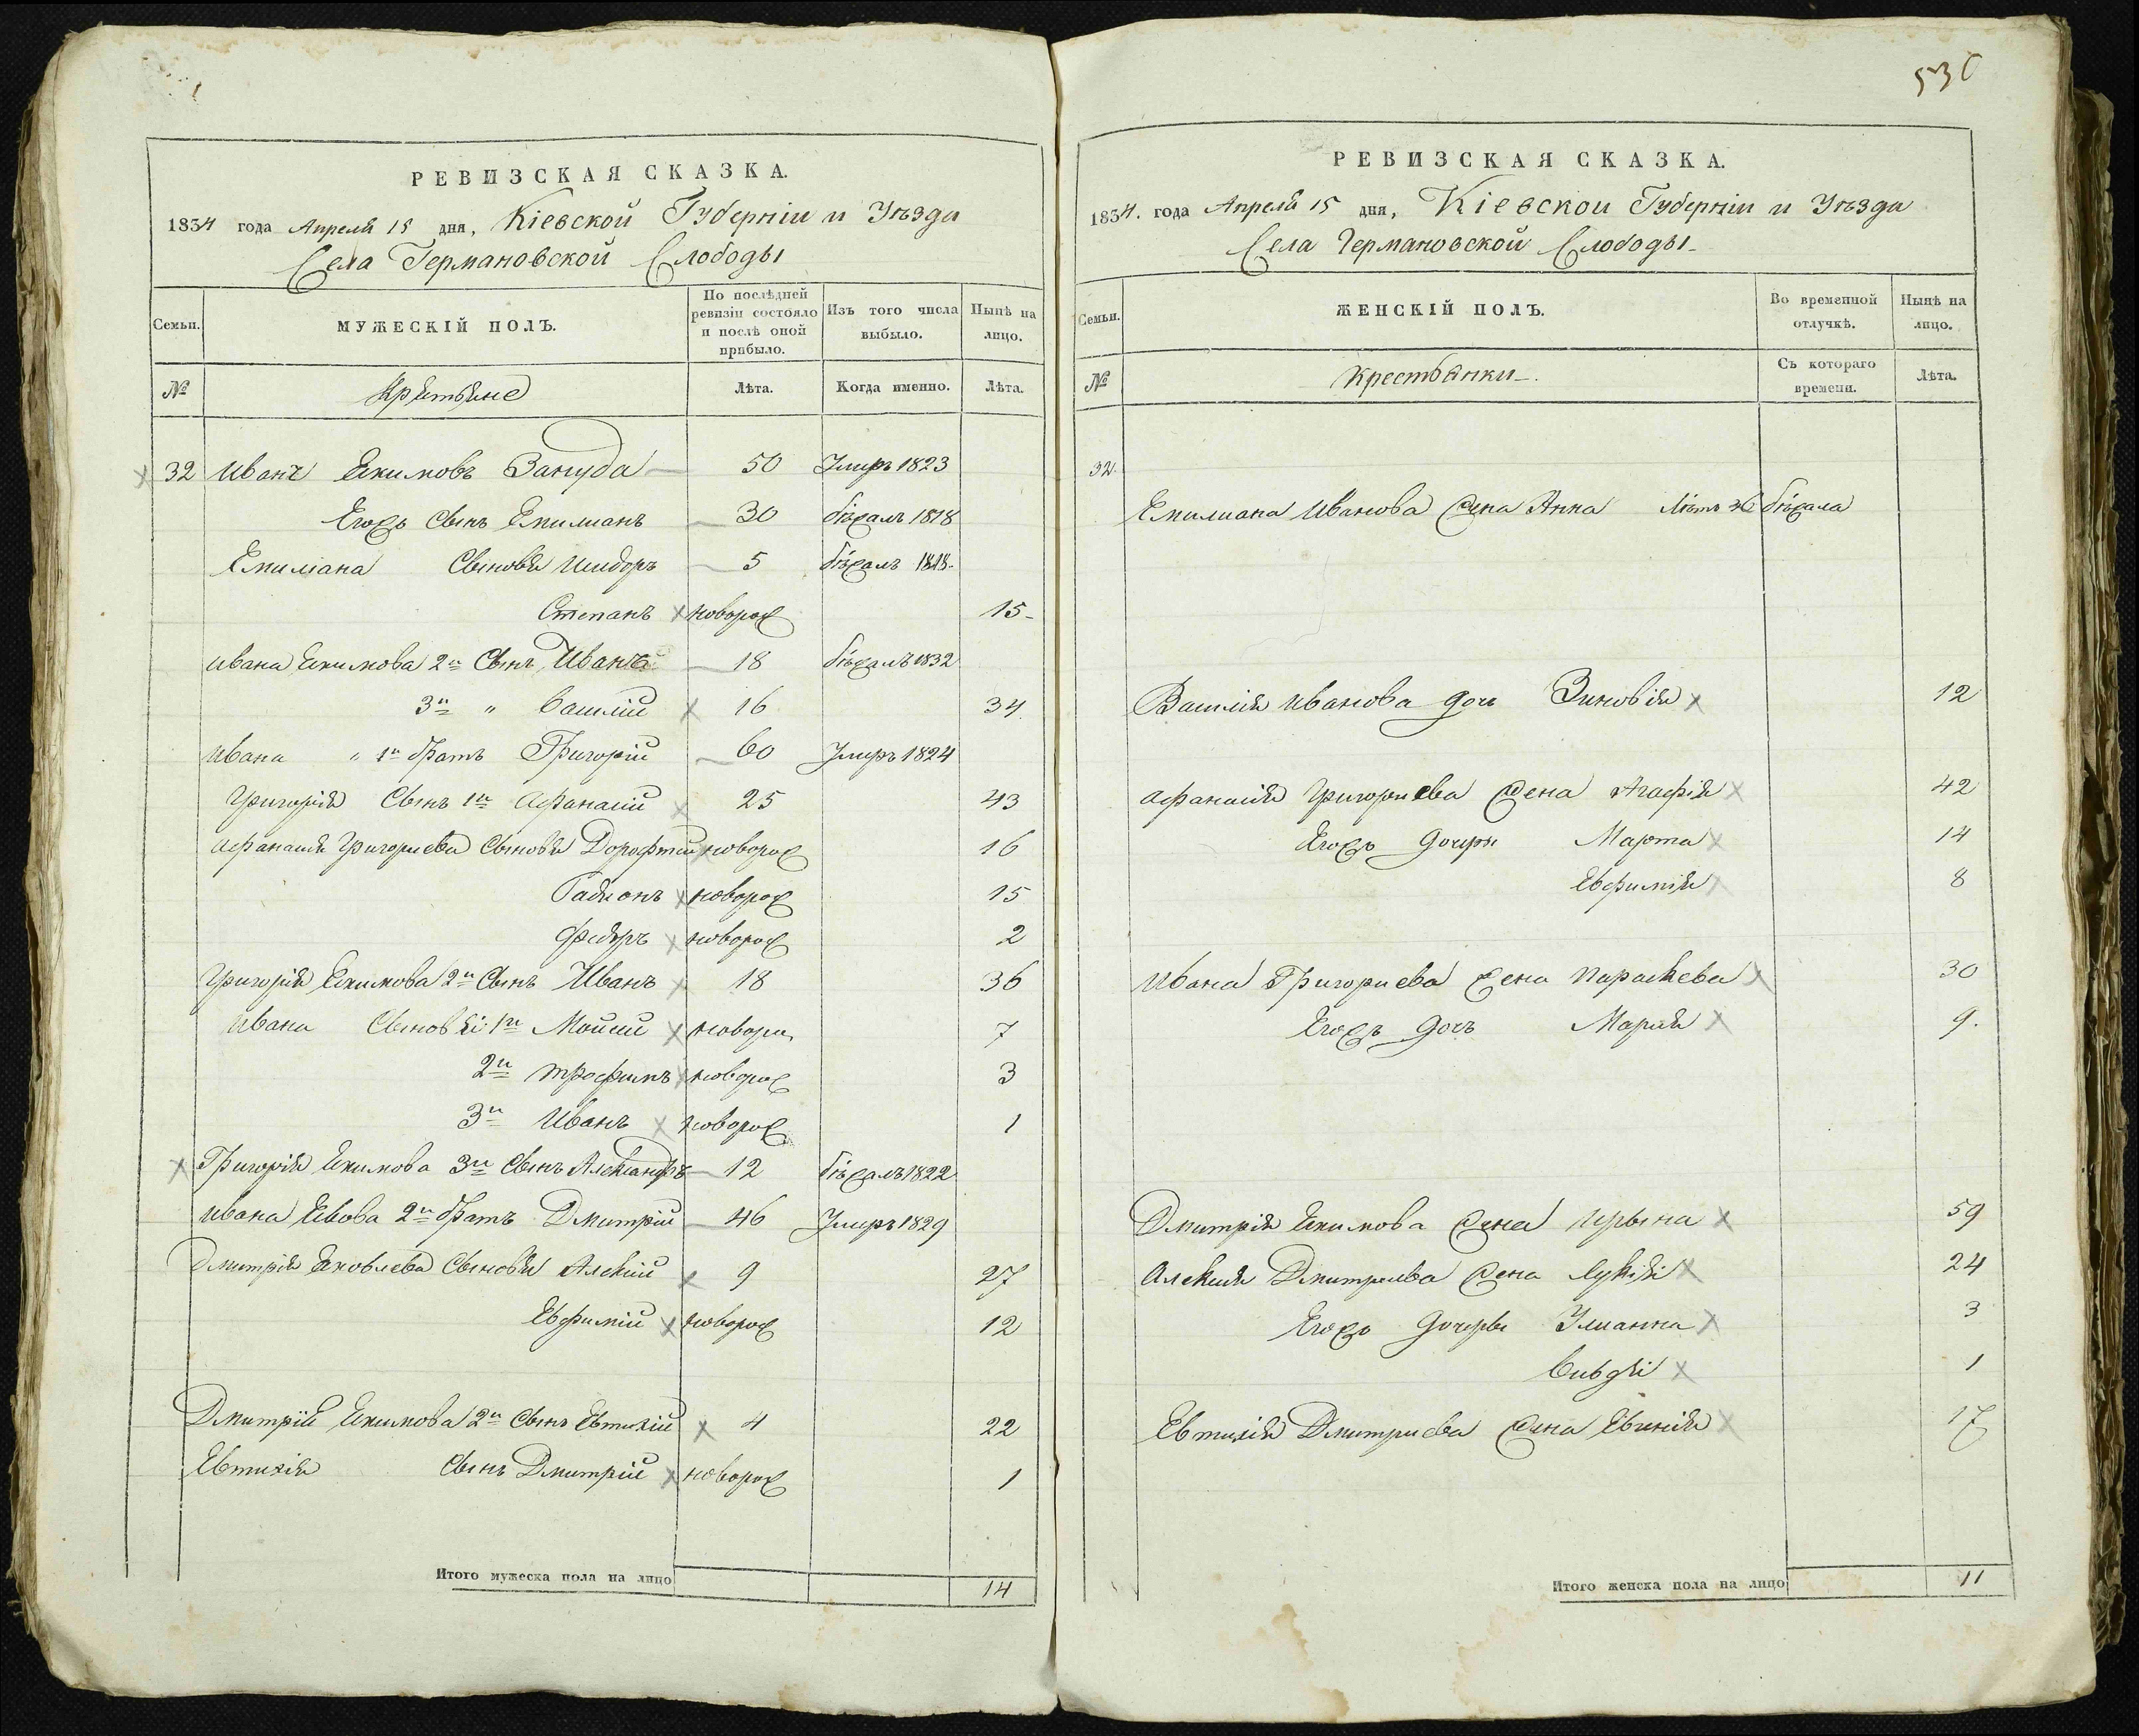 530
РЕВИЗСКАЯ СКАЗКА.
1834 года Апреля 15 дня, Кіевской Губерніи и Уѣзда
Села Германовской Слободы
Семьи.
МУЖЕСКІЙ ПОЛЪ.
По послѣдней ревизіи состояло и послѣ оной прибыло.
Изъ того числа выбыло.
Нынѣ на лицо.
№
Крестьяне
Лѣта.
Когда именно.
Лѣта.
32 Иванъ Екимовъ Зануда 50 Умеръ 1823
Егожъ Сынъ Емилианъ 30 бѣжалъ 1818
Емилиана Сыновья Исидоръ 5 бѣжалъ 1818.
Степанъ новорож 15
Ивана Екимова 2й Сынъ Иванъ 18 бѣжалъ 1832
3й " Василій 16 34
Ивана " 1й братъ Григорій 60 Умеръ 1824
Григорія Сынъ 1й Афанасій 25 43
Афанасія Григориева Сыновья Дорофтей новорож 16
Радионъ новорож 15
Федоръ новорож 2
Григорія Екимова 2й Сынъ Иванъ 18 36
Ивана Сыновья: 1й Мойсей новорож 7
2й Трофимъ новорож 3
3й Иванъ новорож 1
Григорія Екимова 3й Сынъ Александръ 12 бѣжалъ 1822
Ивана 2й братъ Дмитрій 46 Умеръ 1829
Дмитрія Яковлева Сыновья Алексій 9 27
Евфимій новорож 12
Дмитрія Екимова 2й Сынъ Евтихій 4 22
Евтихія Сынъ Дмитрій новорож 1
Итого мужеска пола на лицо 14
РЕВИЗСКАЯ СКАЗКА.
1834. года Апреля 15 дня, Кіевской Губерніи и Уѣзда
Села Германовской Слободы
Семьи.
ЖЕНСКІЙ ПОЛЪ.
Во временной отлучкѣ.
Нынѣ на лицо.
№
Крестьянки.
Съ котораго времени.
Лѣта.
32.
Емилиана Иванова жена Анна Лѣтъ бѣжала
Василія Иванова дочь Зиновія 12
Афанасія Григориева жена Агафія 42
Егожъ дочери Марта 14
Евфимія 8
Ивана Григориева жена Параскева 30
Егожъ дочь Марія 9.
Дмитрія Екимова жена Ирына 59
Алексія Дмитриева жена Лукія 24
Егожъ дочеры Улианна 3
1
Евтихія Дмитриева жена Евгенія 17
Итого женска пола на лицо 11